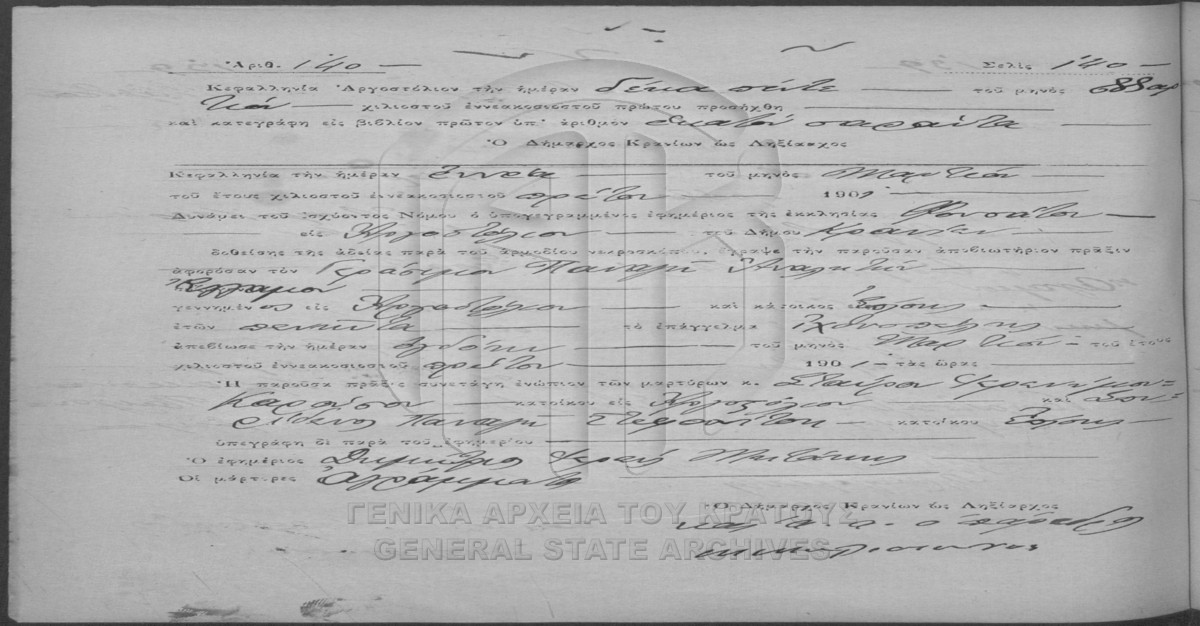 Ἀριθ. 140 — Σελὶς 140 —
Κεφαλληνία Ἀργοστόλιον τὴν ἡμέραν δέκα πέντε τοῦ μηνὸς
χιλιοστοῦ ἐννεακοσιοστοῦ πρώτου προσήχθη
καὶ κατεγράφη εἰς βιβλίον πρῶτον ὑπ' ἀριθμὸν ἑκατὸν σαράντα
Ὁ Δήμαρχος Κρανίων ὡς Ληξίαρχος
Κεφαλληνία τὴν ἡμέραν ἐννέα τοῦ μηνὸς Μαρτίου
τοῦ ἔτους χιλιοστοῦ ἐννεακοσιοστοῦ πρώτου 1901
Δυνάμει τοῦ ἰσχύοντος Νόμου ὁ ὑπογεγραμμένος ἐφημέριος τῆς ἐκκλησίας
εἰς Ἀργοστόλιον τοῦ Δήμου Κρανίων
δοθείσης τῆς ἀδείας παρὰ τοῦ ἁρμοδίου νεκροσκόπου, ἔγραψε τὴν παροῦσαν ἀποβιωτήριον πρᾶξιν
ἀφορῶσαν τὸν Γεράσιμον Παναγῆ
γεννημένος εἰς Ἀργοστόλιον καὶ κάτοικος
ἐτῶν πενῆντα τὸ ἐπάγγελμα ἰχθυοπώλης
ἀπεβίωσε τὴν ἡμέραν ὀγδόην τοῦ μηνὸς Μαρτίου τοῦ ἔτους
χιλιοστοῦ ἐννεακοσιοστοῦ πρώτου 1901 τὰς ὥρας
Ἡ παροῦσα πρᾶξις συνετάγη ἐνώπιον τῶν μαρτύρων κ. Σταύρου
κατοίκου εἰς Ἀργοστόλιον καὶ Σπυ-
ρίδωνος Παναγῆ κατοίκου
ὑπεγράφη δὲ παρὰ τοῦ ἐφημερίου
Ὁ ἐφημέριος Δημήτριος Ἱερεὺς
Οἱ μάρτυρες ἀγράμματοι
Ὁ Δήμαρχος Κρανίων ὡς Ληξίαρχος
ὁ πάρεδρος
ΓΕΝΙΚΑ ΑΡΧΕΙΑ ΤΟΥ ΚΡΑΤΟΥΣ
GENERAL STATE ARCHIVES